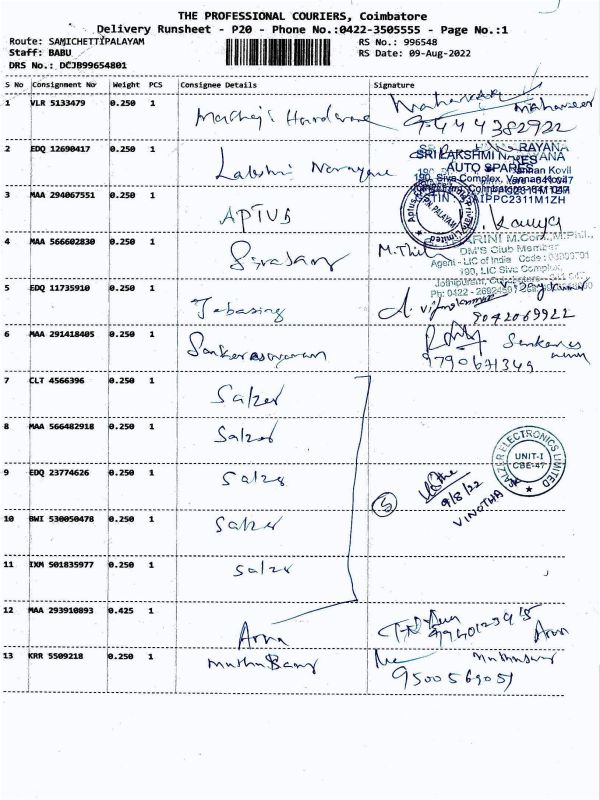 THE PROFESSIONAL COURIERS, Coimbatore
Delivery Runsheet - P20 - Phone No.:0422-3505555 - Page No.:1
Route: SAMICHETTIPALAYAM
RS No.: 996548
Staff: BABU
RS Date: 09-Aug-2022
DRS No.: DCJB99654801
S No Consignment No Weight PCS Consignee Details Signature
1 VLR 5133479 0.250 1 Hardware Mahaveer
9444382922
2 EDQ 12690417 0.250 1 Lakshmi Narayane
SRI LAKSHMI NARAYANA
AUTO SPARES
190, Siva Complex, Vannan Kovil
3 MAA 294067551 0.250 1 APTUS
4 MAA 566602830 0.250 1 Sivabang M.Thil
M.Com., M.Phil.,
DM'S Club Member
Agent - LIC of India Code :
190, LIC Siva Complex,
5 EDQ 11735910 0.250 1 Jebasing
9042069922
6 MAA 291418405 0.250 1
9790671349
7 CLT 4566396 0.250 1 Salzer
8 MAA 566482918 0.250 1 Salzer
SALZER ELECTRONICS LIMITED
UNIT-I
CBE-47
9 EDQ 23774626 0.250 1 Salzer
5
9/8/22
VINOTHA
10 BWI 530050478 0.250 1 Salzer
11 IXM 501835977 0.250 1 Salzer
12 MAA 293910893 0.425 1 Arna Arna
13 KRR 5509218 0.250 1
9500569051